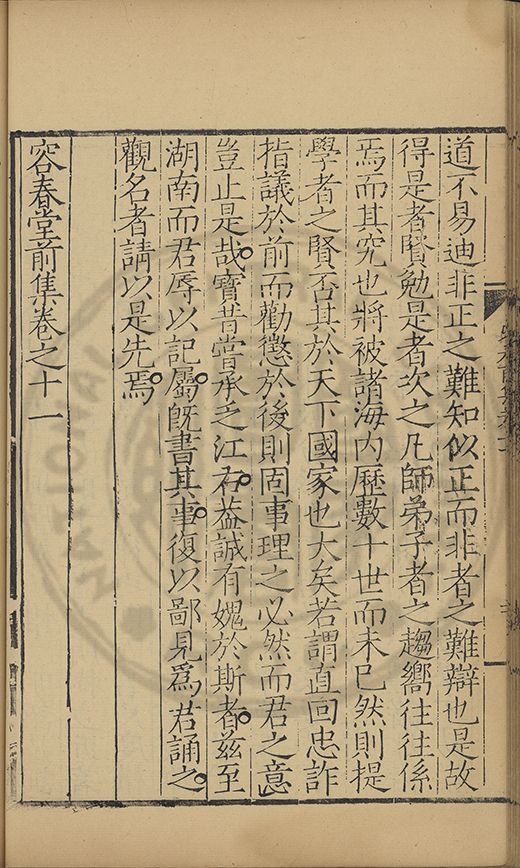 道不易迪非正之難知似正而非者之難辯也是故
得是者賢勉是者次之凡師弟子者之趨嚮往往係
焉而其究也將被諸海内歷數十世而未已然則提
學者之賢否其於天下國家也大矣若謂直回忠詐
指議於前而勸懲於後則固事理之必然而君之意
豈止是哉寳昔嘗承乏江右葢誠有媿於斯者兹至
湖南而君辱以記屬旣書其事復以鄙見爲君誦之
觀名者請以是先焉
容春堂前集卷之十一